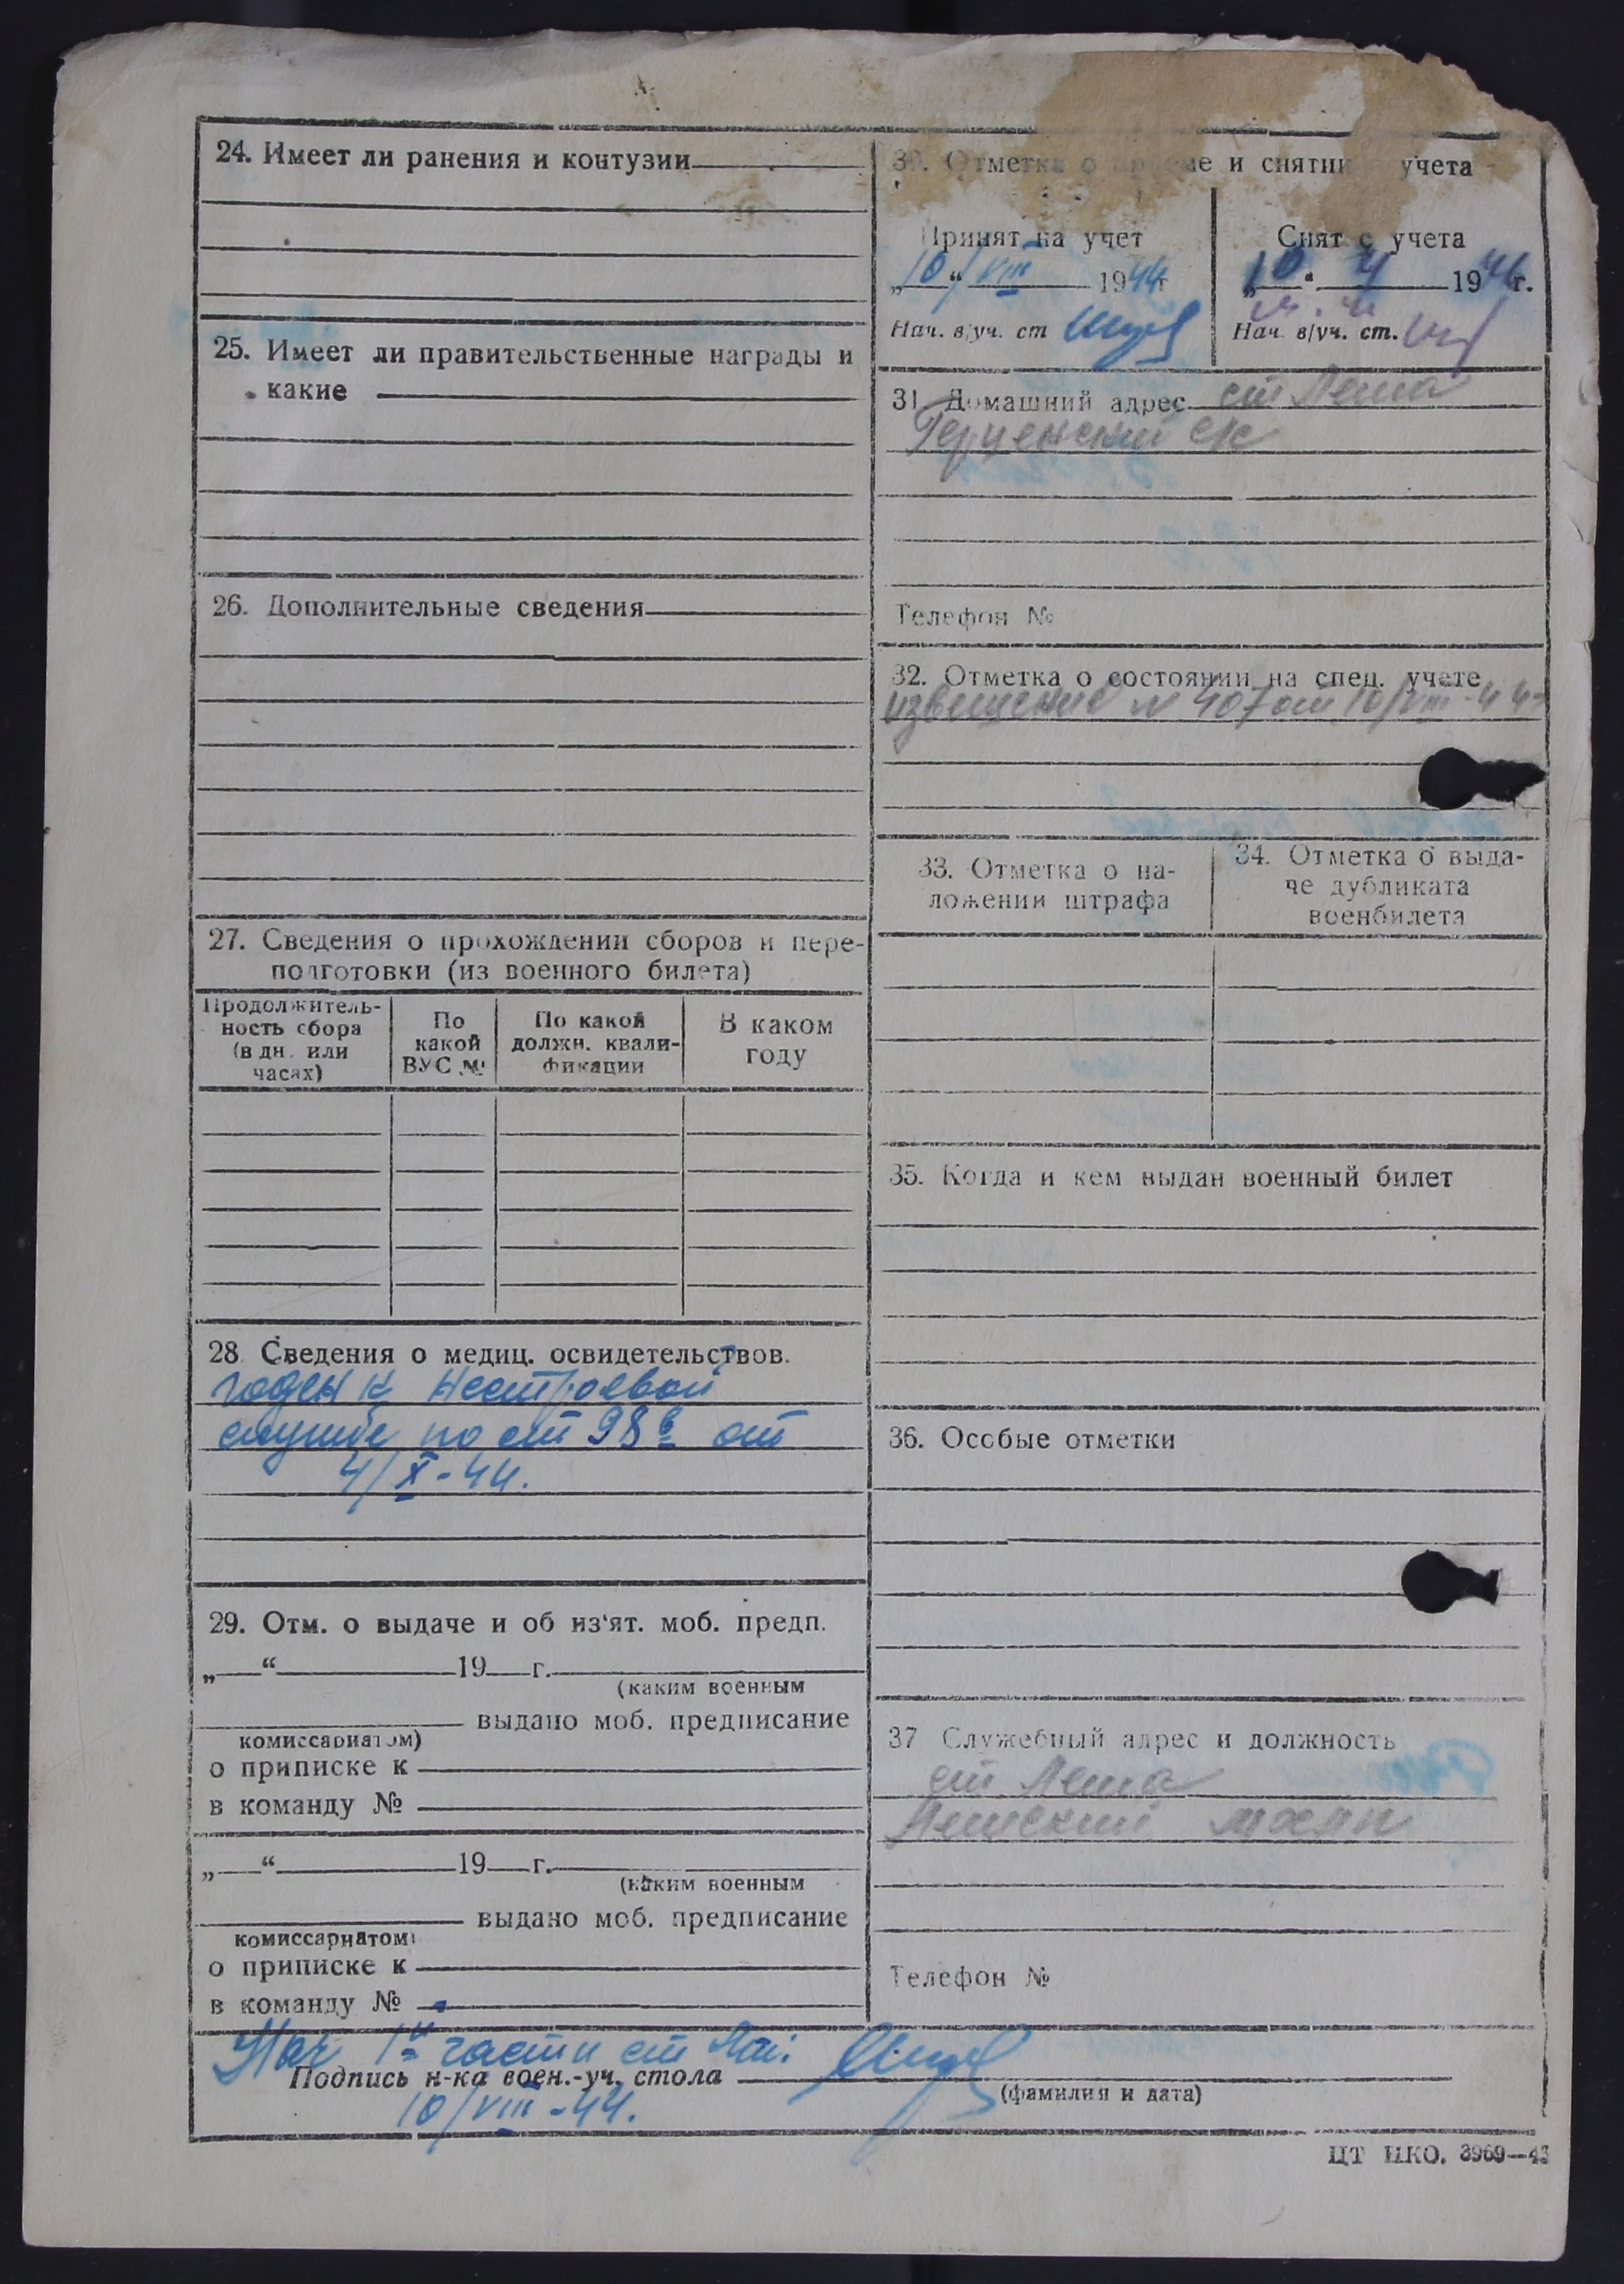 24. Имеет ли ранения и контузии
25. Имеет ли правительственные награды и
какие
26. Дополнительные сведения
27. Сведения о прохождении сборов и пере-
подготовки (из военного билета)
Продолжитель-
ность сбора
(в дн. или
часах)
По
какой
ВУС №
По какой
должн. квали-
фикации
В каком
году
28 Сведения о медиц. освидетельствов.
годен к нестроевой
службе по ст 98 б от
4/X-44.
29. Отм. о выдаче и об из'ят. моб. предп.
„ “ 19 г.
(каким военным
выдано моб. предписание
комиссариатом)
о приписке к
в команду №
„ “ 19 г.
(каким военным
выдано моб. предписание
комиссариатом)
о приписке к
в команду №
30. Отметка о приеме и снятии с учета
Принят на учет
„10“ VIII 1944г
Нач. в/уч. ст
Снят с учета
„10“ 4 1946г.
Нач. в/уч. ст.
31. Домашний адрес ст Леша
Герценский ск
Телефон №
32. Отметка о состоянии на спец. учете
извещение N 407 от 10/VIII-44
33. Отметка о на-
ложении штрафа
34. Отметка о выда-
че дубликата
военбилета
35. Когда и кем выдан военный билет
36. Особые отметки
37 Служебный адрес и должность
ст. Леша
Лешский
Телефон №
Нач 1й части ст
Подпись н-ка воен.-уч. стола
(фамилия и дата)
10/VIII-44.
ЦТ НКО. 3969—43